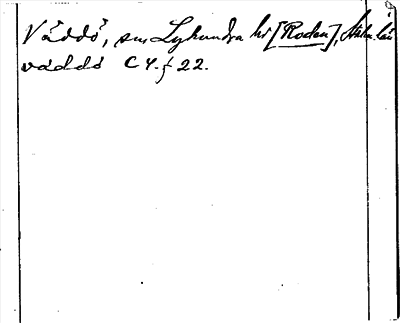 Väddö, sn, Lyhundra hd [Roden], Sthm. län
väddö C 4. f 22.